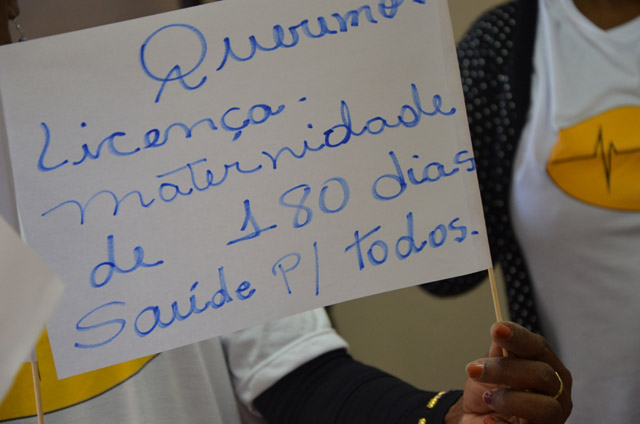 Querumos
Licença.
maternidade
de 180 dias
Saúde P/ todos.